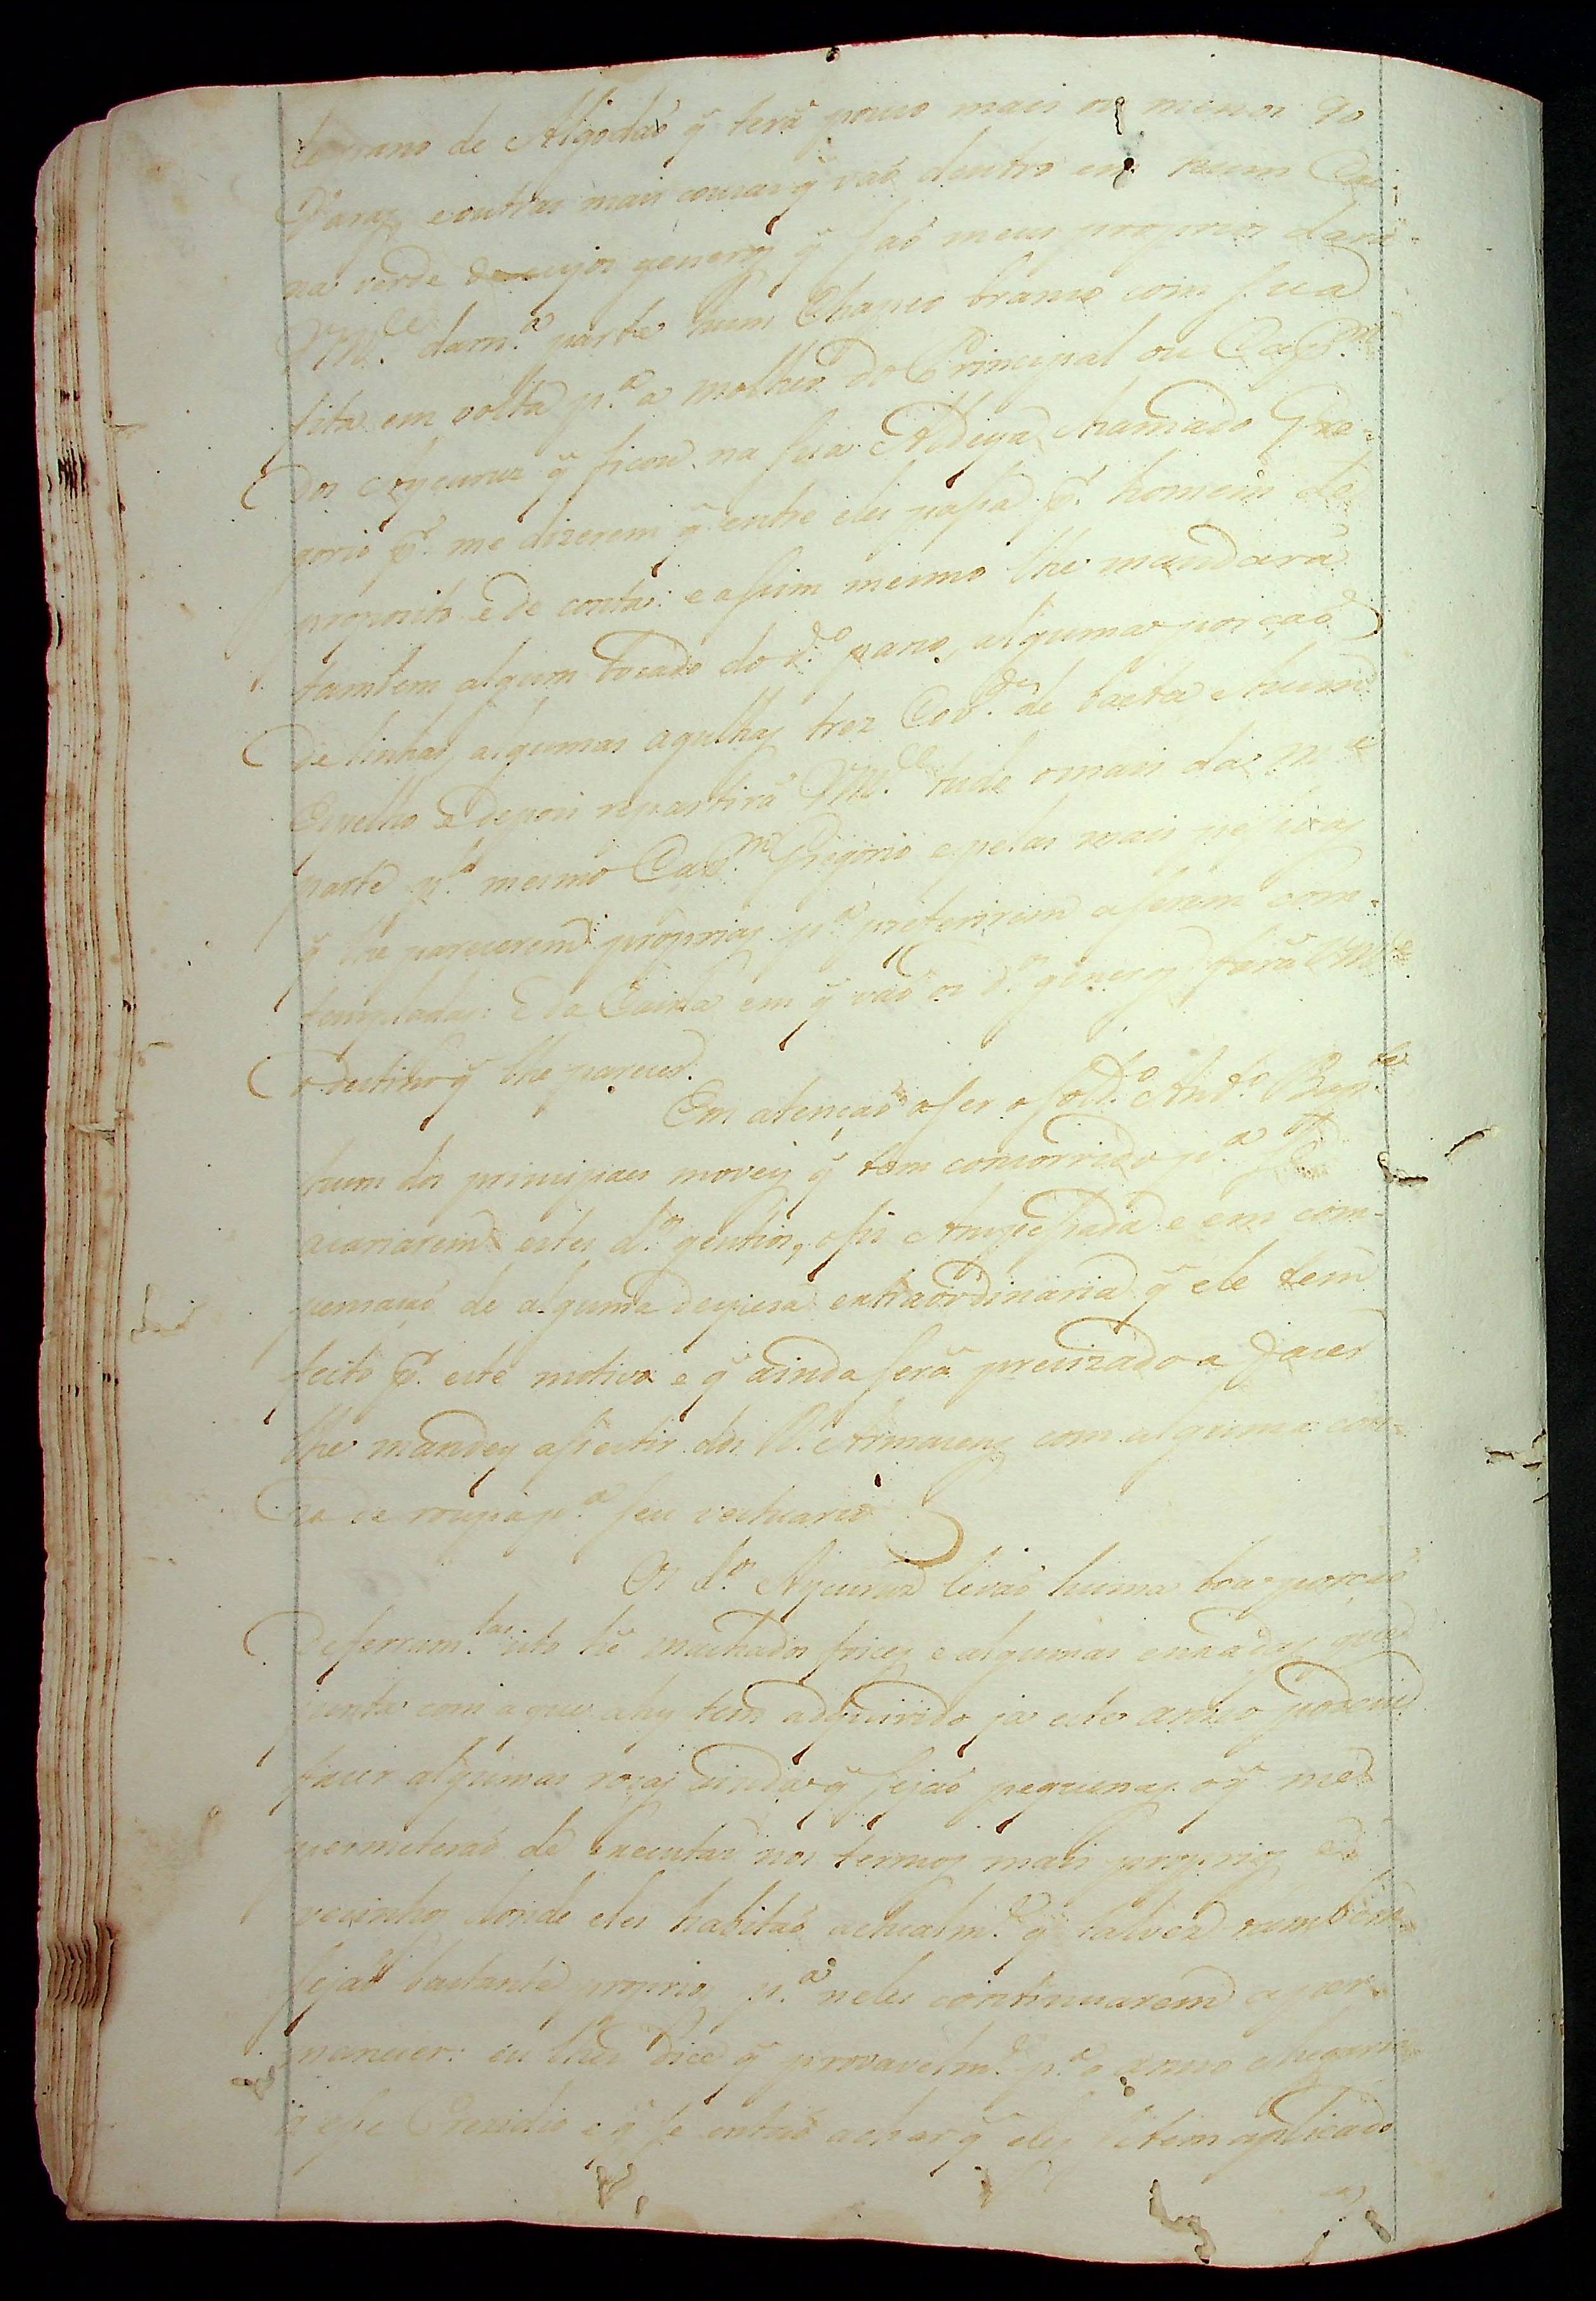 terrano de Algodaõ q̃ terá pouco mais ou menos 90
Varas, e outras mais couzas q̃ vaõ dentro em hum Cai-
xa verde de cujos generos q̃ saõ meus proprios dará
VM.ce da m.ª parte hum Chapeo branco com sua
fita em volta p.ª a molher do Principal ou Cap.m
dos q̃ ficou na sua Aldeya chamado Gre-
gorio p.r me dizerem q̃ entre eles passa p.r homem de
proposito e de conta: e assim mesmo lhe mandará
tambem algum bocado do d.º pano, alguma porçaõ
de linhas, algumas agulhas, trez Cov.dos de baeta e hum
Espelho e depois repartirá VM.ce tudo o mais da m.ª
parte p.lo mesmo Cap.m Gregorio e pelas mais pessoas
q̃ lhe parecerem proprias p.ª preterirem a serem com-
templadas: e da Caixa em q̃ vaõ os d.os generos fará VM.ce
o destino q̃ lhe parecer.
Em atençaõ a ser o sold.º Ant.º Bap.ta
hum dos principaes moveis q̃ tem concorrido p.ª se
acariarem estes d.os gentios, e em com-
pensaçaõ de alguma despesa extraordinaria q̃ ele tem
feito p.r este motivo e q̃ ainda será precizado a facer
lhe mandey assestir dos R.s Armacens com alguma cou-
za de roupa p.ª seu vestuario
Os d.os levaõ huma boa porçaõ
de ferram.tas isto hé machados foices e algumas enxadas que
junta com a que ahy tem adquirido ja este anno podem
facer algumas roças ainda q̃ sejaõ pequenas o q̃ me
permeteraõ de executar nos termos mais proprios e
vecinhos donde eles habitaõ actualm.te q̃ talvez tambem
sejaõ bastante proprios p.ª neles continuarem a per-
manecer: eu lhes dice q̃ provavelm.te p.ª o anno chegaria
a esse Prezidio e q̃ se entaõ achar q̃ eles se tem aplicado